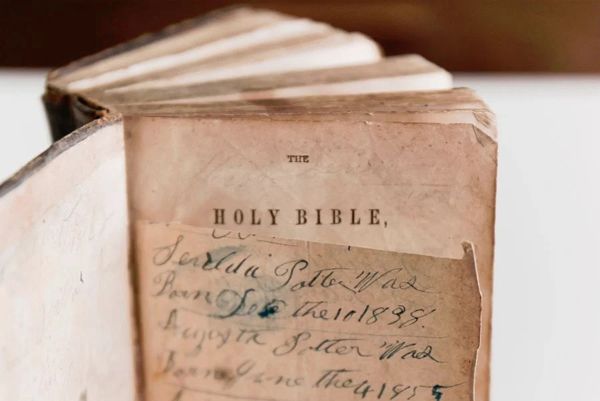 THE
HOLY BIBLE,
Serelda Potter Was
Born Dec the 10 1838.
Augusta Potter Was
Born June the 4 1855